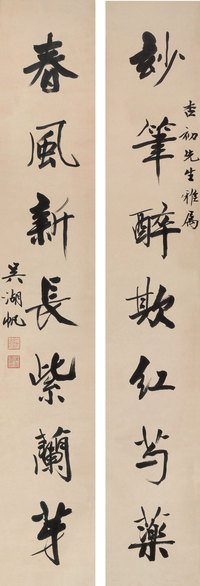 妙筆醉欺紅芍藥
杏初先生雅屬
春風新長紫蘭芽
吳湖帆